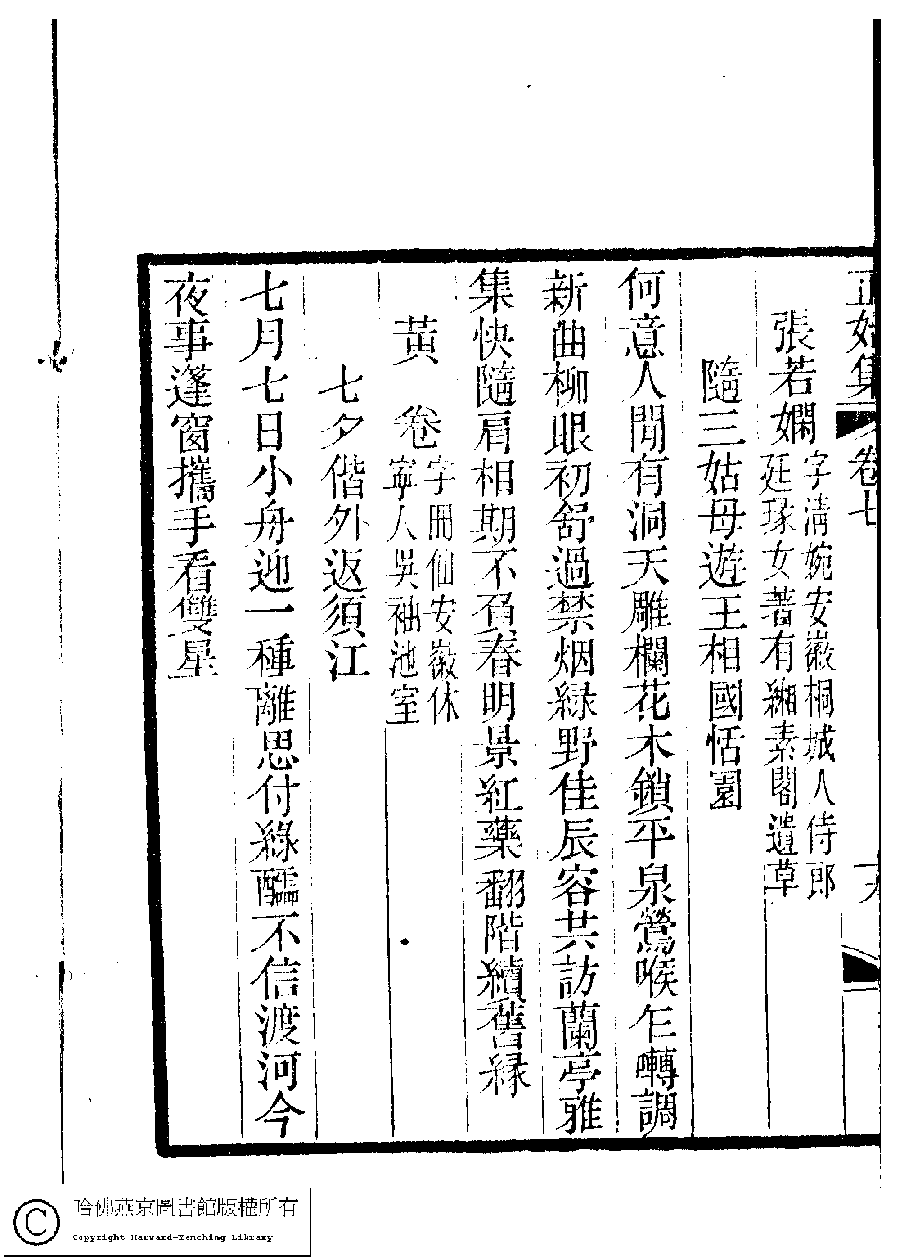 正始集 卷七
張若嫻 字清婉安徽桐城人侍郎
廷瑑女著有緗素閣遺草
隨三姑母遊王相國恬園
何意人間有洞天雕欄花木鎖平泉鶯喉乍囀調
新曲柳眼初舒過禁烟綠野佳辰容共訪蘭亭雅
集快隨肩相期不負春明景紅藥翻階續舊緣
黃卷 字冊仙安徽休
寧人吳袖池室
七夕偕外返須江
七月七日小舟迎一種離思付綠醽不信渡河今
夜事蓬窗攜手看雙星
© 哈佛燕京圖書館版權所有
Copyright Harvard-Yenching Library